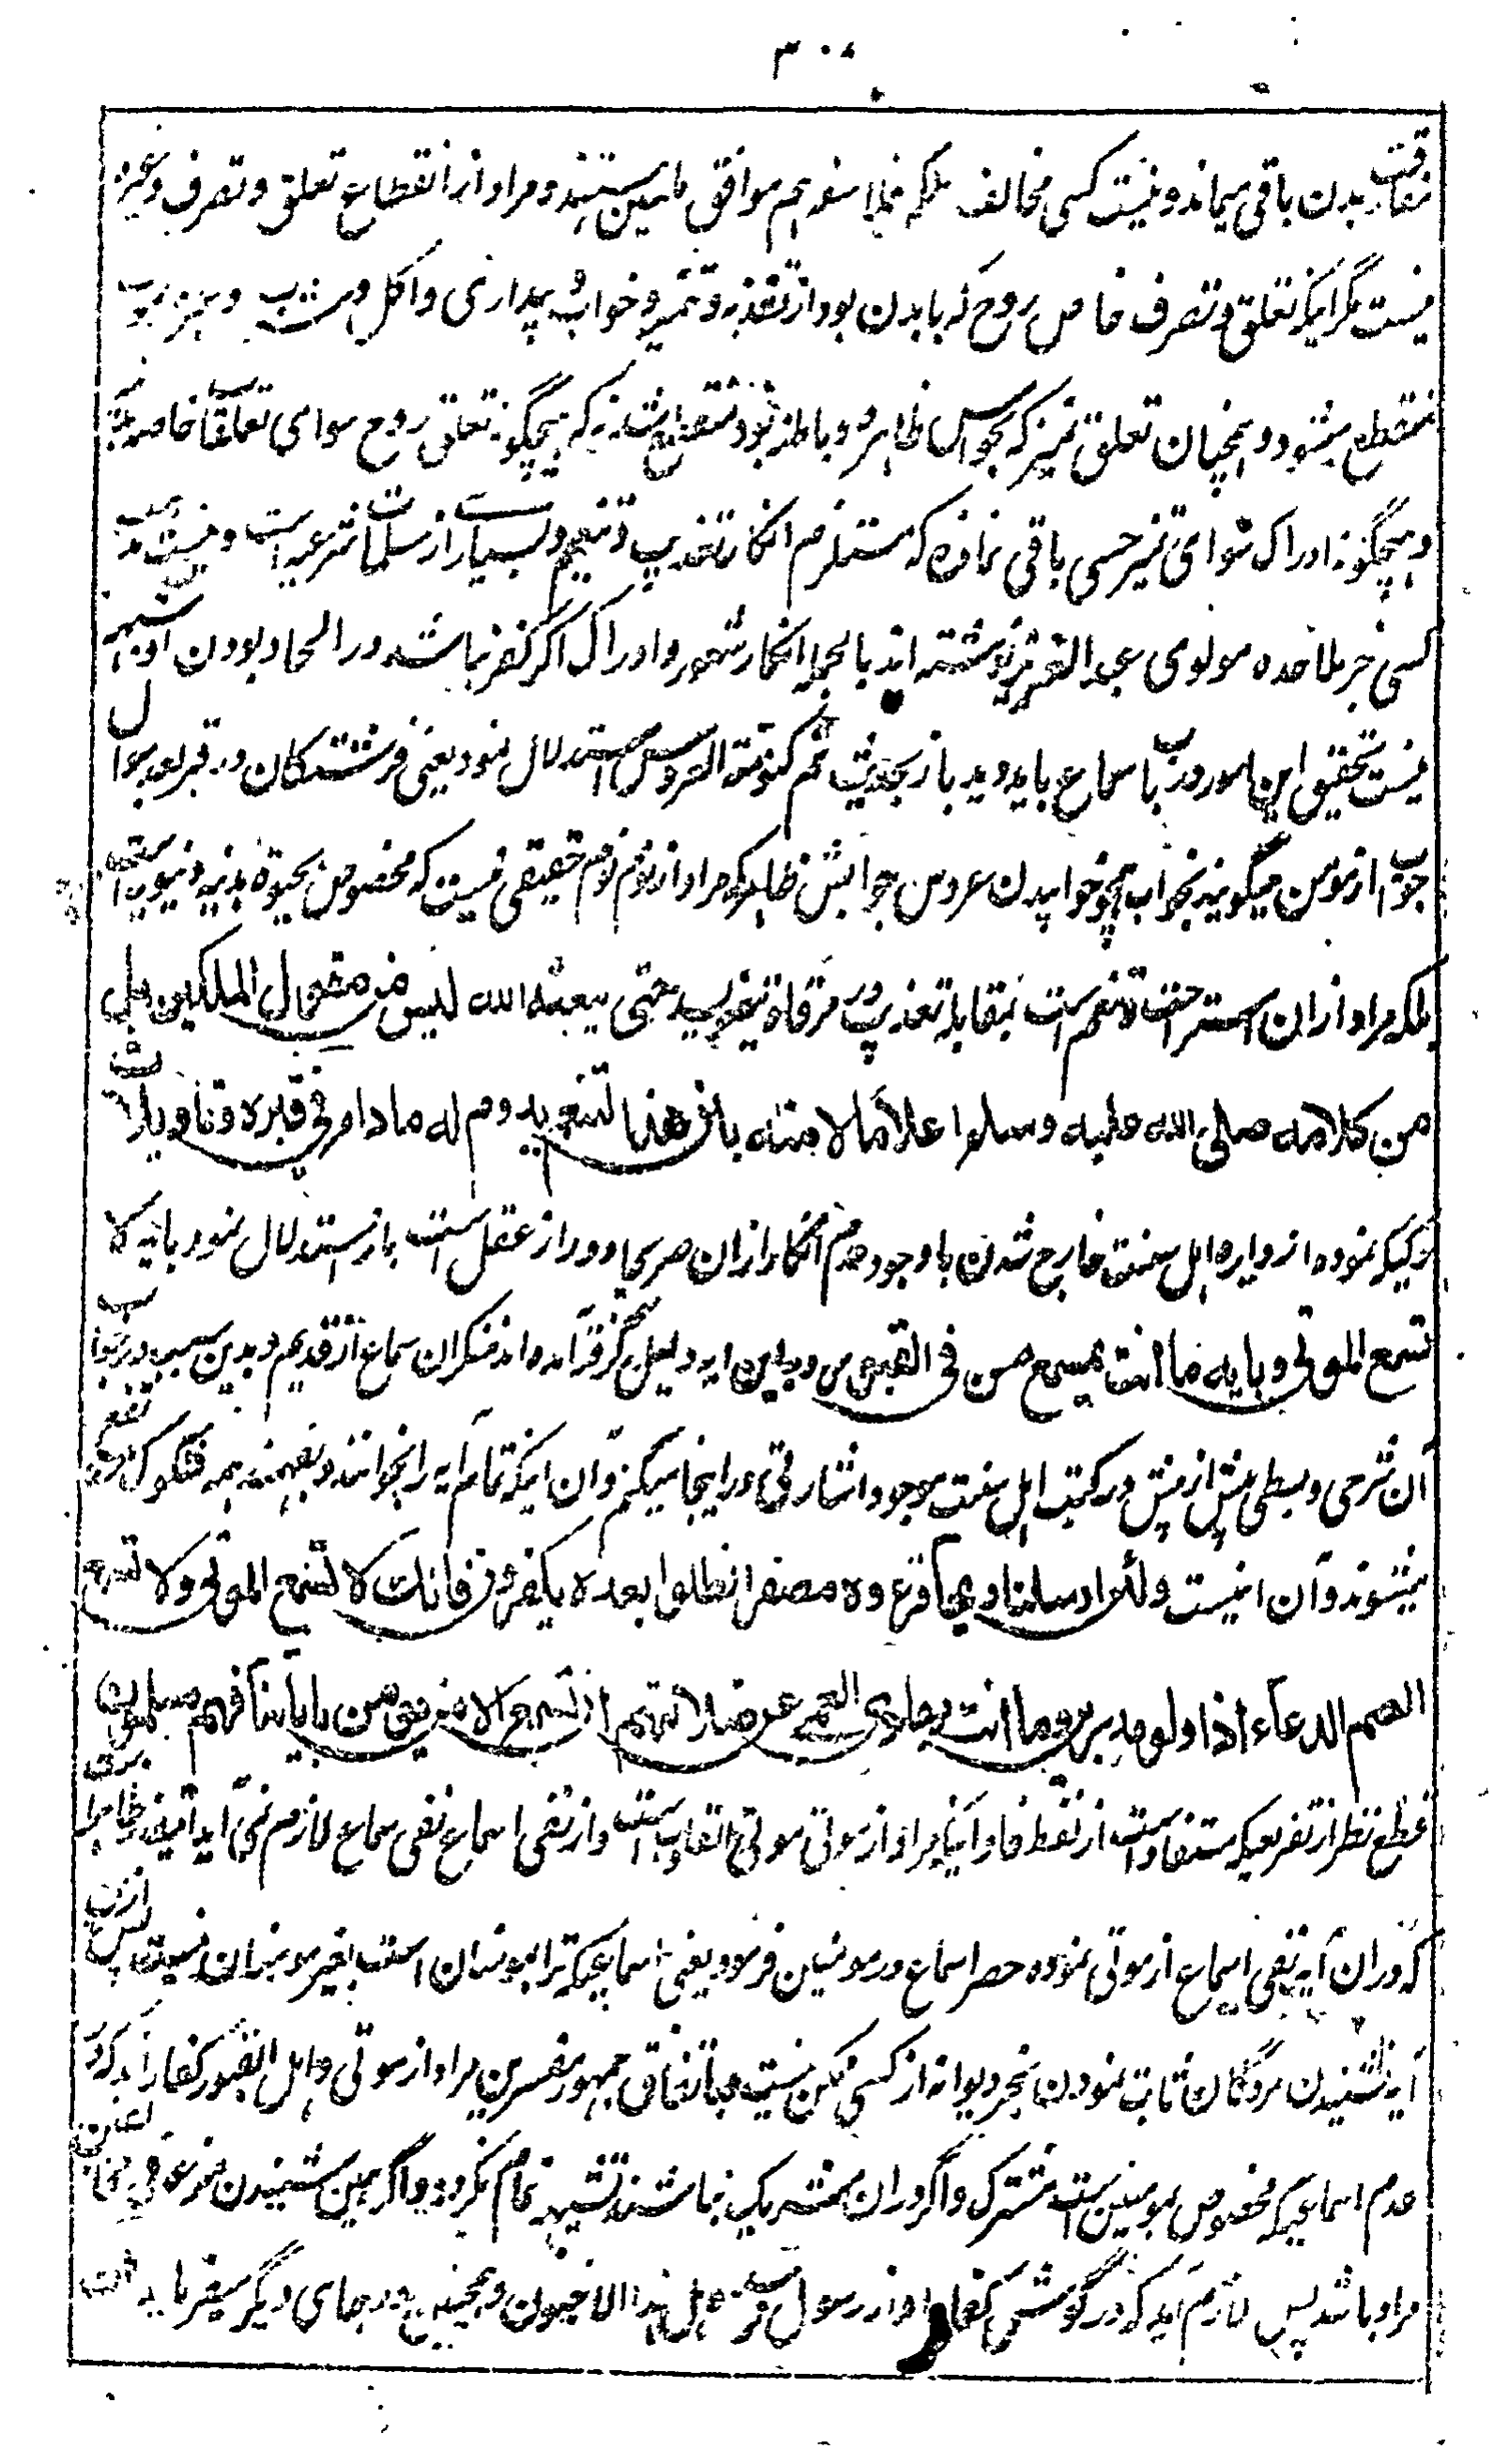 ۳۰۸
مفارقت بدن باقی میماند و نیست کسی مخالف بلکه فلاسفه هم موافق مایین هستند و مراد از انقطاع تعلق و تصرف وغیره
نیست مگر اینکه تعلق و تصرف خاص روح که با بدن بود از تغذیه و تنمیه و خواب و بیداری و اکل و شرب وغیره
منقطع میشود و همچنان تعلق تمیز که بحواس ظاهره و باطنه بود منقطع شد نه که هیچگونه تعلق روح سوای تعلقات خاصه
و هیچگونه ادراک سوای تمیز حسی باقی نمانده که مستلزم انکار تعذیب و تنعیم و بسیار از مسلمات شرعیه است و نیست مذهب
کسی جز ملاحده مولوی عبد العزیز نوشته اند بالجمله انکار شعور و ادراک اگر کفر نباشد در الحاد بودن او شبهه
نیست تحقیق این امور در باب سماع باید دید باز بحدیث نم کنومة العروس استدلال نمود یعنی فرشتگان در قبر بعد سوال
جواب از مومن میگویند بخواب همچو خوابیدن عروس جوابش ظاهر که مراد از نوم نوم حقیقی نیست که مخصوص بحیوة بدنیه دنیویه است
بلکه مراد از ان استراحت و تنعم است بمقابله تعذیب در مرقاة می نویسد حتی یبعثه الله لیس من مقول الملکین بل
من کلامه صلی الله علیه وسلم اعلاما لامته بان هذا التنعیم یدوم له مادام فی قبره و تاویلات
رکیکه نموده از دایره اهل سنت خارج شدن با وجود عدم انکار ازان صریحا دور از عقل است باز استدلال نمود بآیه لا
تسمع الموتی و بایه ما انت بمسمع من فی القبور و باین ایه دلیل گرفته آمده اند منکران سماع از قدیم و بدین سبب در جواب
آن شرحی و بسطی بیش از پیش در کتب اهل سنت موجود اشارتی در اینجا میکنم و آن اینکه تمام آیه را بخوانند و بفهمند همه شکوک رفع
میشوند و آن اینست ولئن ارسلنا ریحا فراوه مصفرا لظلوا بعده یکفرون فانک لا تسمع الموتی ولا تسمع
الصم الدعاء اذا ولوا مدبرین وما انت بهادی العمی عن ضلالتهم ان تسمع الا من یومن بآیاتنا فهم مسلمون
قطع نظر از تفریعیکه مستفاد است از لفظ فا در آنکه مراد از موتی موتی القلوب است و از نفی اسماع نفی سماع لازم نمی آید اینقدر ظاهر
که در ان آیه نفی اسماع از موتی نموده حصر اسماع در مومنین فرمود یعنی اسماعیکه ترا بمومنان است بغیر مومنان نیست پس ازین
آیه نشنیدن مردگان ثابت نمودن بجز دیوانه از کسی ممکن نیست و باتفاق جمهور مفسرین مراد از موتی و اهل القبور کفار اند که در
عدم اسماعیکه مخصوص بمومنین است مشترک و اگر در ان شریک نباشند تشبیه تمام نگردد و اگر همین شنیدن
مراد باشد پس لازم آید که در گوش کفار آواز رسول و همچنین در جای دیگر میفرماید